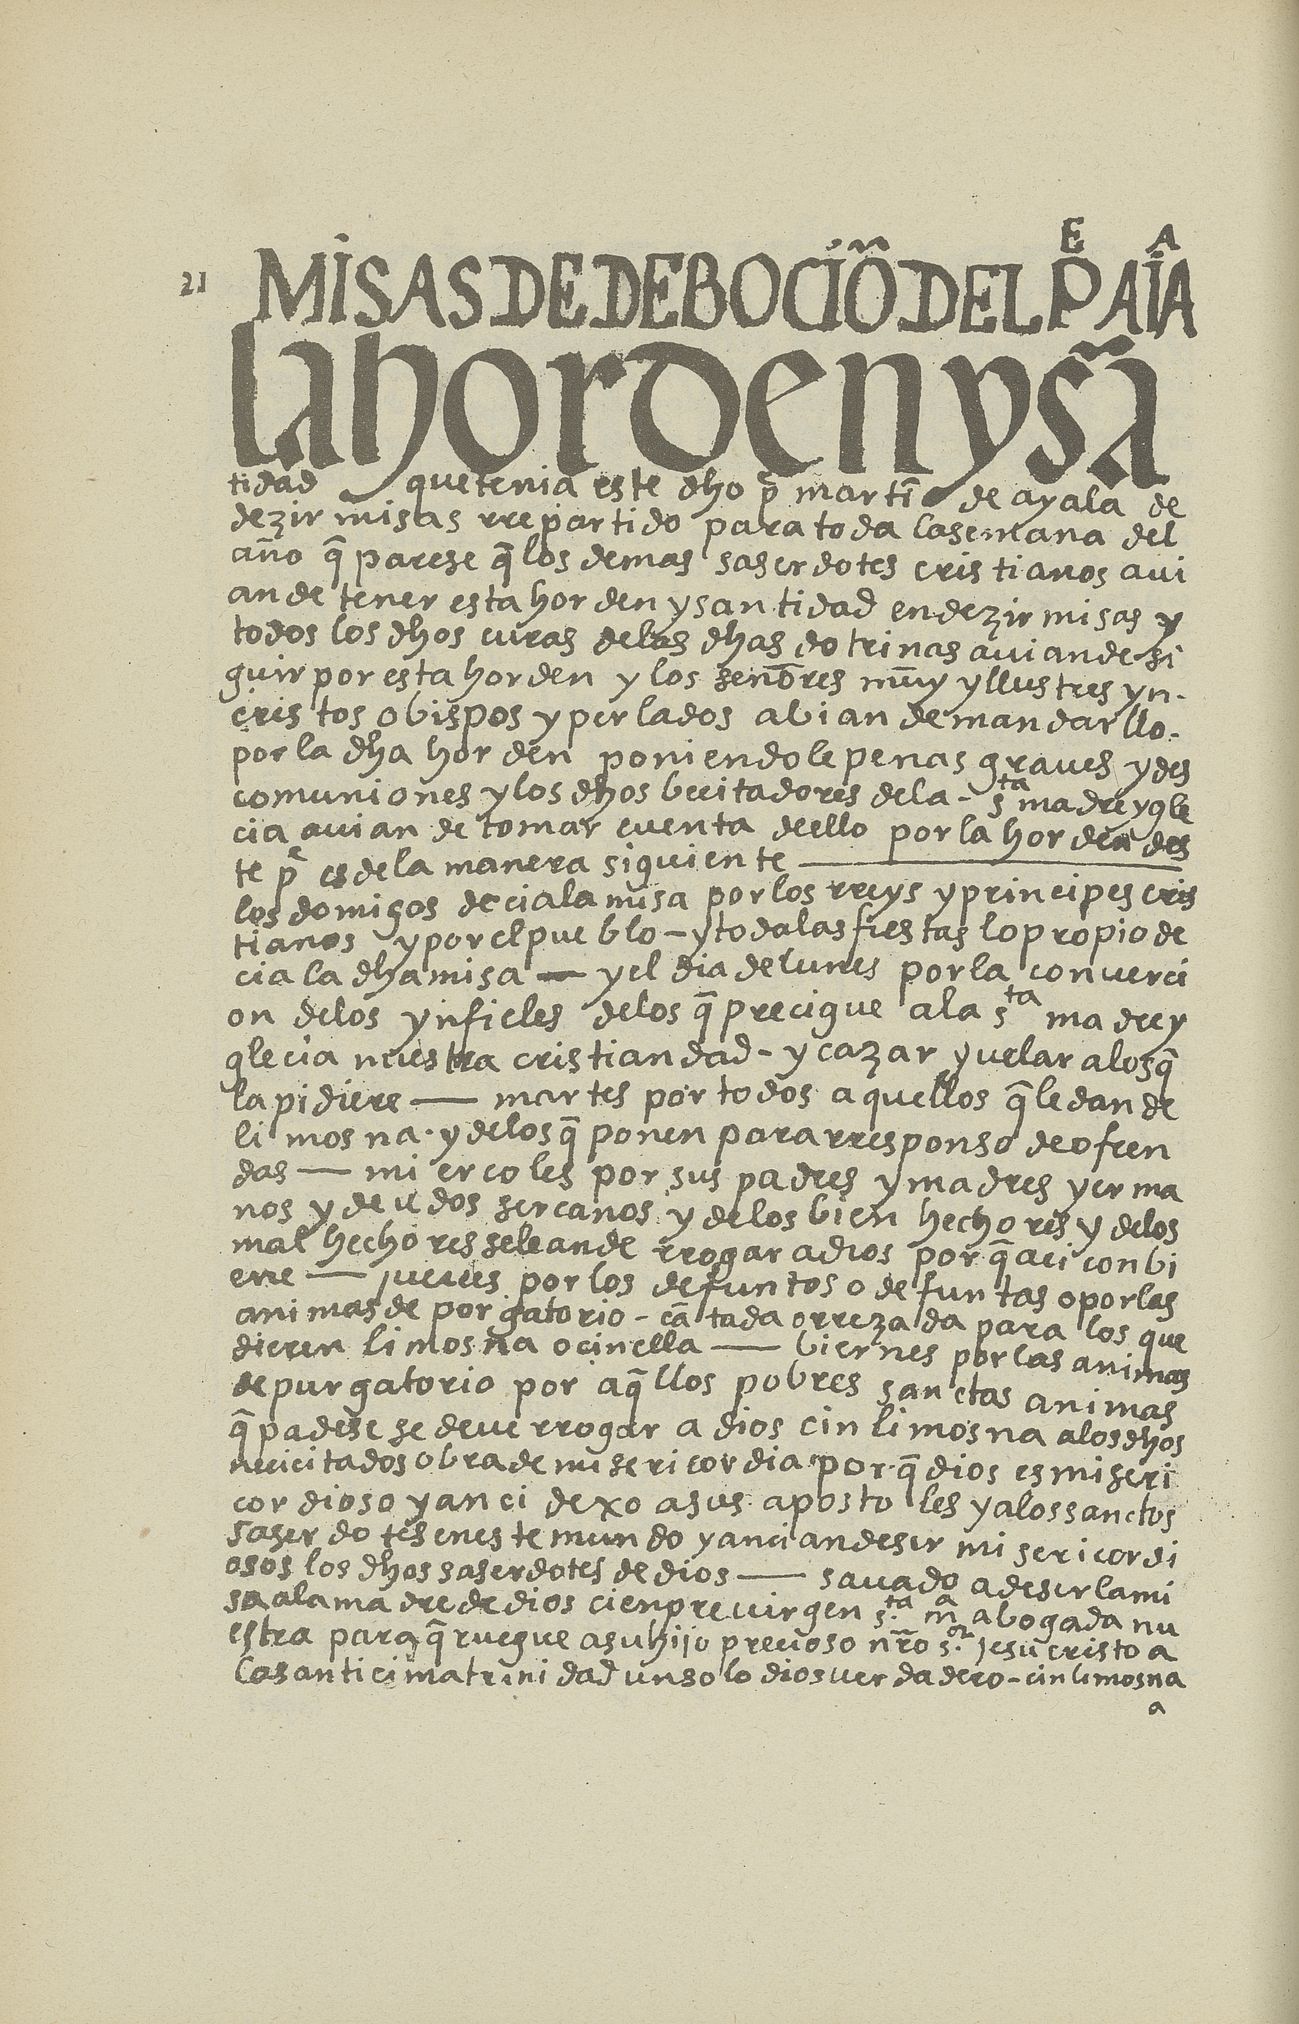 21
MISAS DE DEBOCIÓN DEL Pᴱ AIᴬA
la horden y sã
tidad que tenia este dho p̃ martĩ de ayala de
dezir misas rrepartido para toda la semana del
año q̃ parese q̃ los demas saserdotes cristianos aui
an de tener esta horden y santidad en dezir misas y
todos los dhos curas de las dhas dotrinas auian de si
guir por esta horden y los señores muy yllustres yn-
cristos obispos y perlados abian de mandarllo-
por la dha horden poniendole penas graues y des
comuniones y los dhos becitadores de la - s.ta madre ygle
cia auian de tomar cuenta de ello por la horden des
te p̃ es de la manera siguiente —
los domigos decia la misa por los rreys y principes cris
tianos y por el pueblo - y toda las fiestas lo propio de
cia la dha misa — y el dia de lunes por la conuerci
on de los ynfieles de los q̃ precigue a la s.ta madre y
glecia nuestra cristiandad - y cazar y uelar a los q̃
la pidiere — martes por todos aquellos q̃ le dan de
limosna. y de los q̃ ponen para rresponso de ofren
das — miercoles por sus padres y madres y erma
nos y deudos sercanos y de los bien hechores y de los
mal hechores se le an de rrogar a dios por q̃ aci conbi
ene — jueues por los defuntos o defuntas o por las
animas de porgatorio - cãtada o rrezada para los que
dieren limosna o cin ella — biernes por las animas
de purgatorio por aq̃llos pobres sanctas animas
q̃ padese se deue rrogar a dios cin limosna a los dhos
nececitados obra de misericordia por q̃ dios es miseri
cordioso y anci dexo a sus apostoles y a los sanctos
saserdotes en este mundo y anci an de ser misericordi
osos los dhos saserdotes de dios — sauado a de ser la mi
sa a la madre de dios cienpre uirgen s.ta m.a abogada nu
estra para q̃ ruegue a su hijo precioso nr̃o s.or jesucristo a
la santicima trinidad un solo dios uerdadero - cin limosna
a